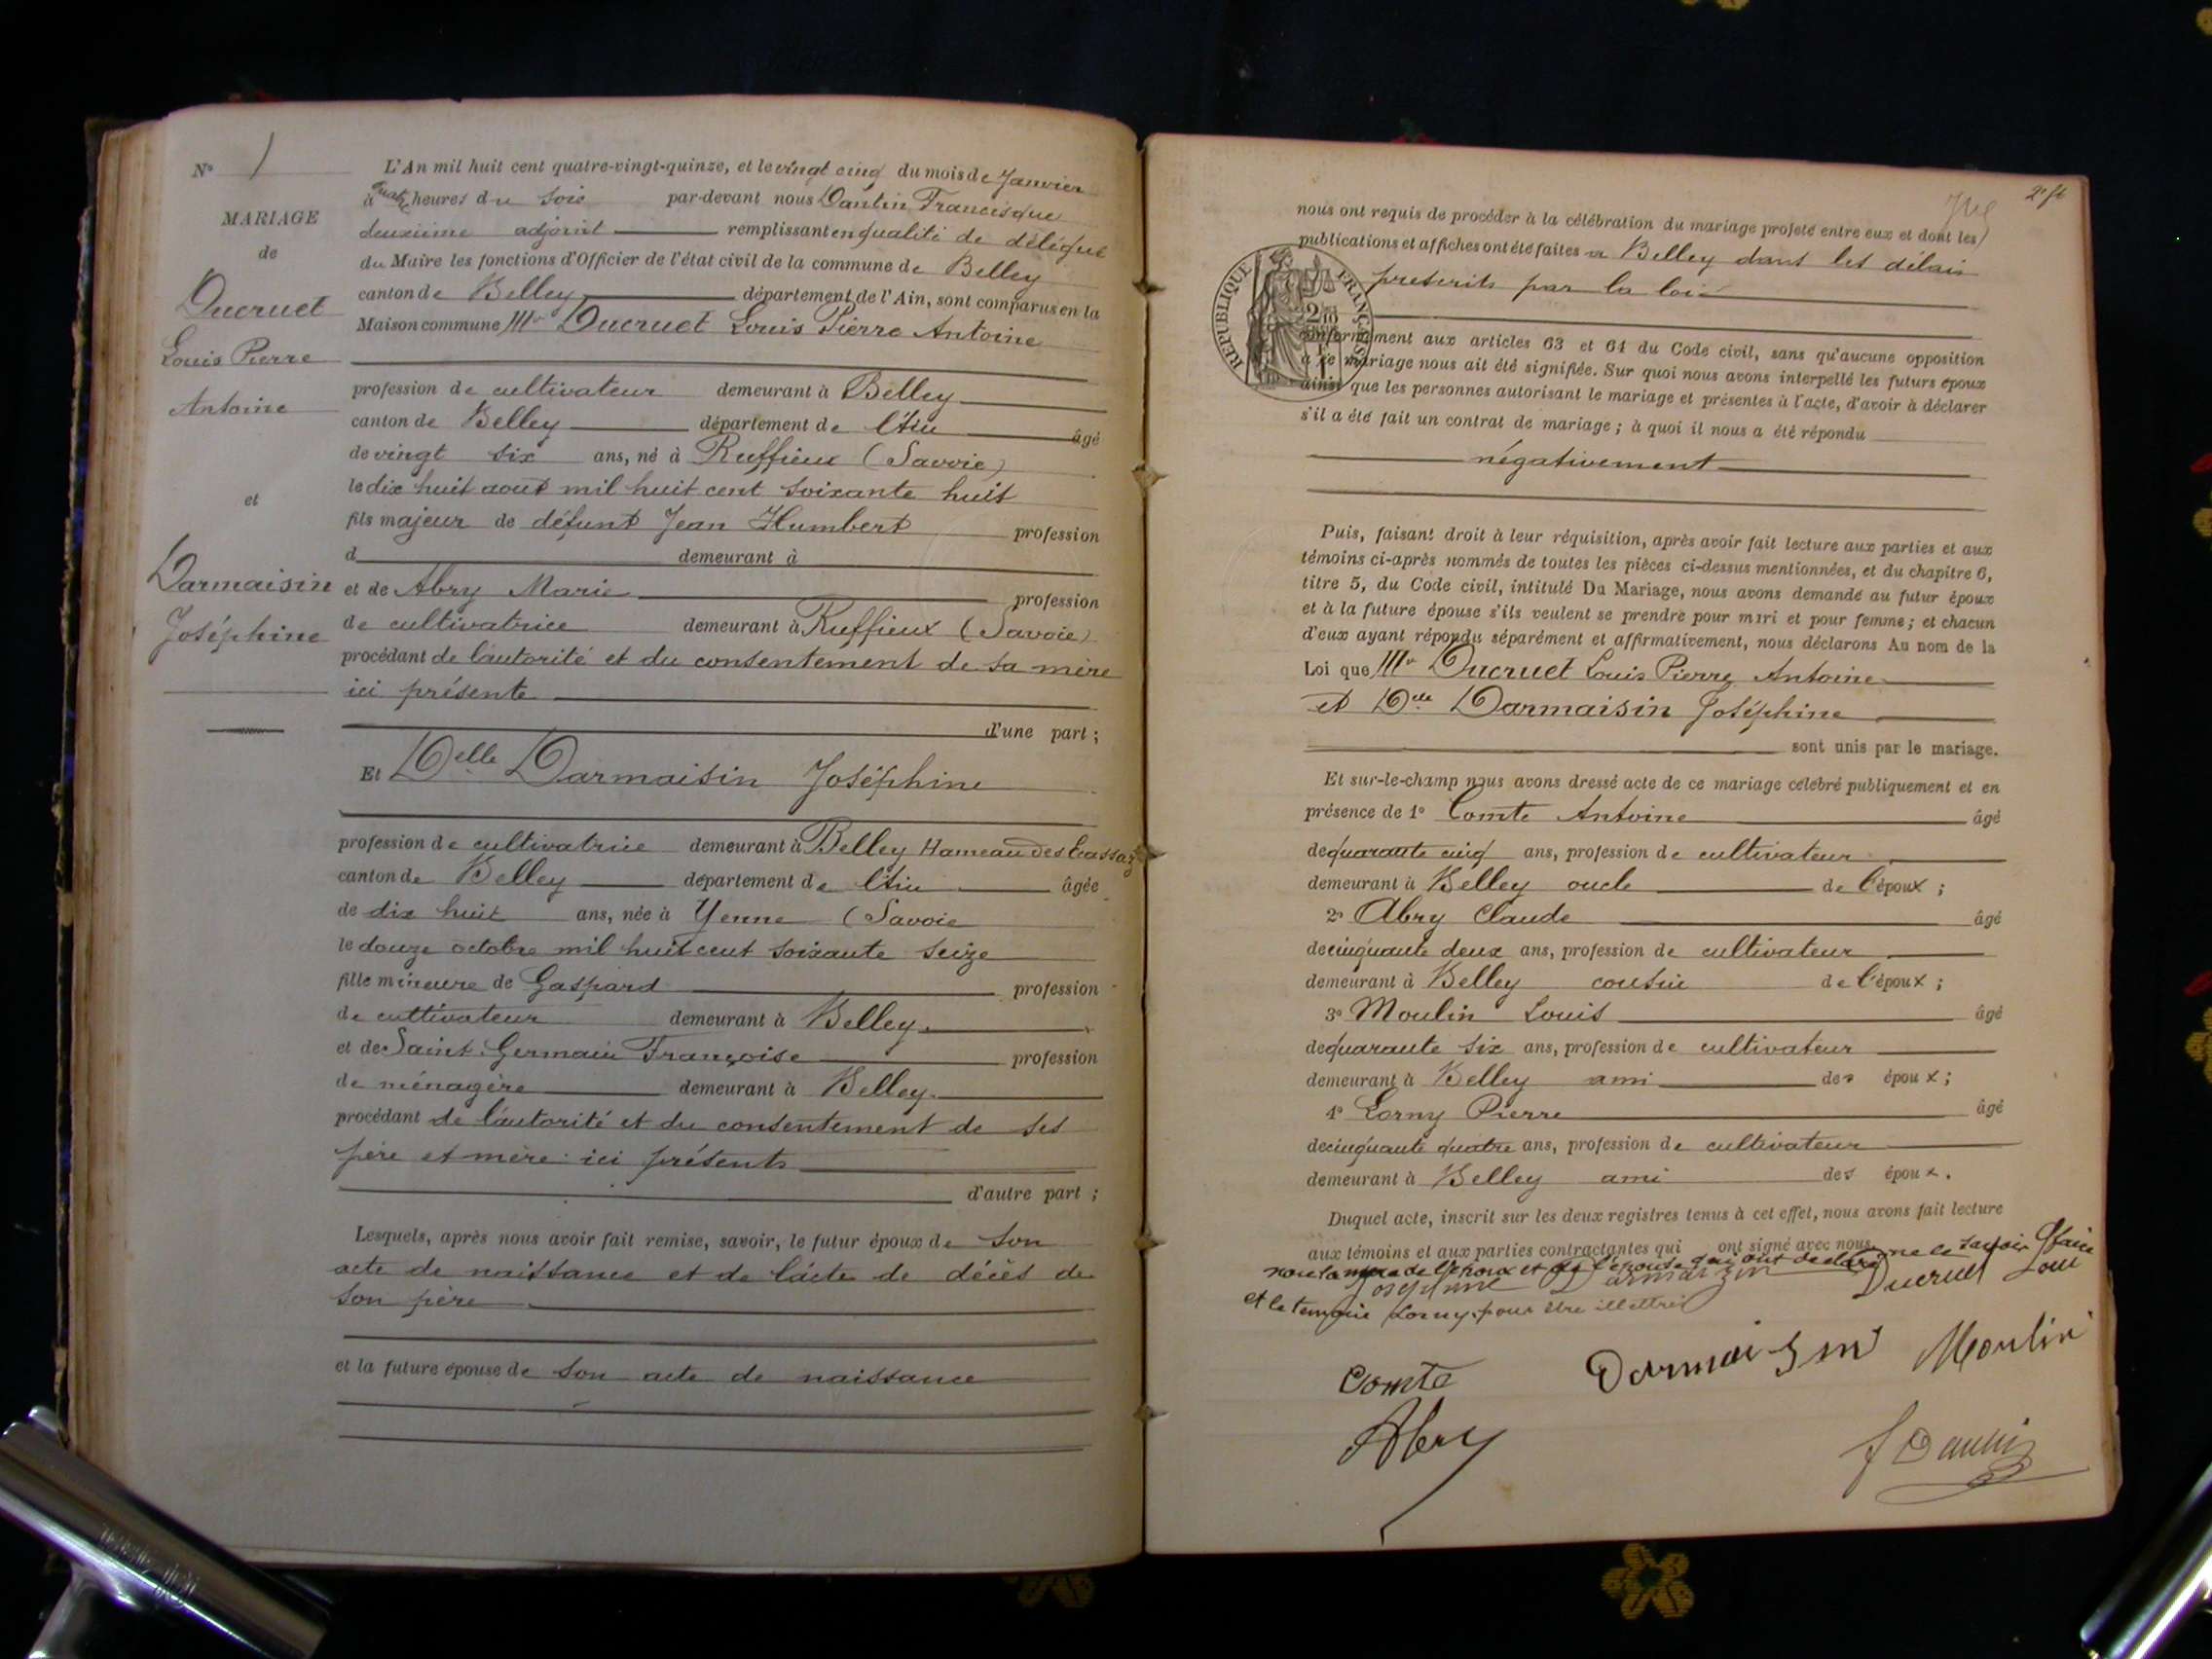 N° 1
MARIAGE
de
Ducruet
Louis Pierre
Antoine
et
Darmaisin
Joséphine
L'An mil huit cent quatre-vingt-quinze, et le vingt cinq du mois de Janvier
à quatre heures du soir par-devant nous Dantin Francisque
deuxième adjoint remplissant en qualité de délégué
du Maire les fonctions d'Officier de l'état civil de la commune de Belley
canton de Belley département de l'Ain, sont comparus en la
Maison commune Mr Ducruet Louis Pierre Antoine
profession de cultivateur demeurant à Belley
canton de Belley département de l'Ain âgé
de vingt six ans, né à Ruffieux (Savoie)
le dix huit aout mil huit cent soixante huit
fils majeur de défunt Jean Humbert profession
d demeurant à
et de Abry Marie profession
de cultivatrice demeurant à Ruffieux (Savoie)
procédant de l'autorité et du consentement de sa mère
ici présente
d'une part ;
Et Delle Darmaisin Joséphine
profession de cultivatrice demeurant à Belley Hameau des
canton de Belley département de l'Ain âgée
de dix huit ans, née à Yenne (Savoie
le douze octobre mil huit cent soixante seize
fille mineure de Gaspard profession
de cultivateur demeurant à Belley
et de Saint Germain Françoise profession
de ménagère demeurant à Belley
procédant de l'autorité et du consentement de ses
père et mère ici présents
d'autre part ;
Lesquels, après nous avoir fait remise, savoir, le futur époux de son
acte de naissance et de l'acte de décès de
son père
et la future épouse de son acte de naissance
nous ont requis de procéder à la célébration du mariage projeté entre eux et dont les
publications et affiches ont été faites à Belley dans les délais
prescrits par la loi
RÉPUBLIQUE FRANÇAISE
conformément aux articles 63 et 64 du Code civil, sans qu'aucune opposition
à ce mariage nous ait été signifiée. Sur quoi nous avons interpellé les futurs époux
ainsi que les personnes autorisant le mariage et présentes à l'acte, d'avoir à déclarer
s'il a été fait un contrat de mariage ; à quoi il nous a été répondu
négativement
Puis, faisant droit à leur réquisition, après avoir fait lecture aux parties et aux
témoins ci-après nommés de toutes les pièces ci-dessus mentionnées, et du chapitre 6,
titre 5, du Code civil, intitulé Du Mariage, nous avons demandé au futur époux
et à la future épouse s'ils veulent se prendre pour mari et pour femme ; et chacun
d'eux ayant répondu séparément et affirmativement, nous déclarons Au nom de la
Loi que Mr Ducruet Louis Pierre Antoine
et Delle Darmaisin Joséphine
sont unis par le mariage.
Et sur-le-champ nous avons dressé acte de ce mariage célébré publiquement et en
présence de 1° Comte Antoine âgé
de quarante cinq ans, profession de cultivateur
demeurant à Belley oncle de l'époux ;
2° Abry Claude âgé
de cinquante deux ans, profession de cultivateur
demeurant à Belley cousin de l'époux ;
3° Moulin Louis âgé
de quarante six ans, profession de cultivateur
demeurant à Belley ami des époux ;
4° Lorny Pierre âgé
de cinquante quatre ans, profession de cultivateur
demeurant à Belley ami des époux.
Duquel acte, inscrit sur les deux registres tenus à cet effet, nous avons fait lecture
aux témoins et aux parties contractantes qui ont signé avec nous
non la mère de l'époux et de l'épouse qui ont déclaré ne le savoir faire
Joséphine Darmaizin Ducruet Loui
et le temoin Lorny pour être illettrés
Comte Darmaizin Moulin
Abry f Dantin